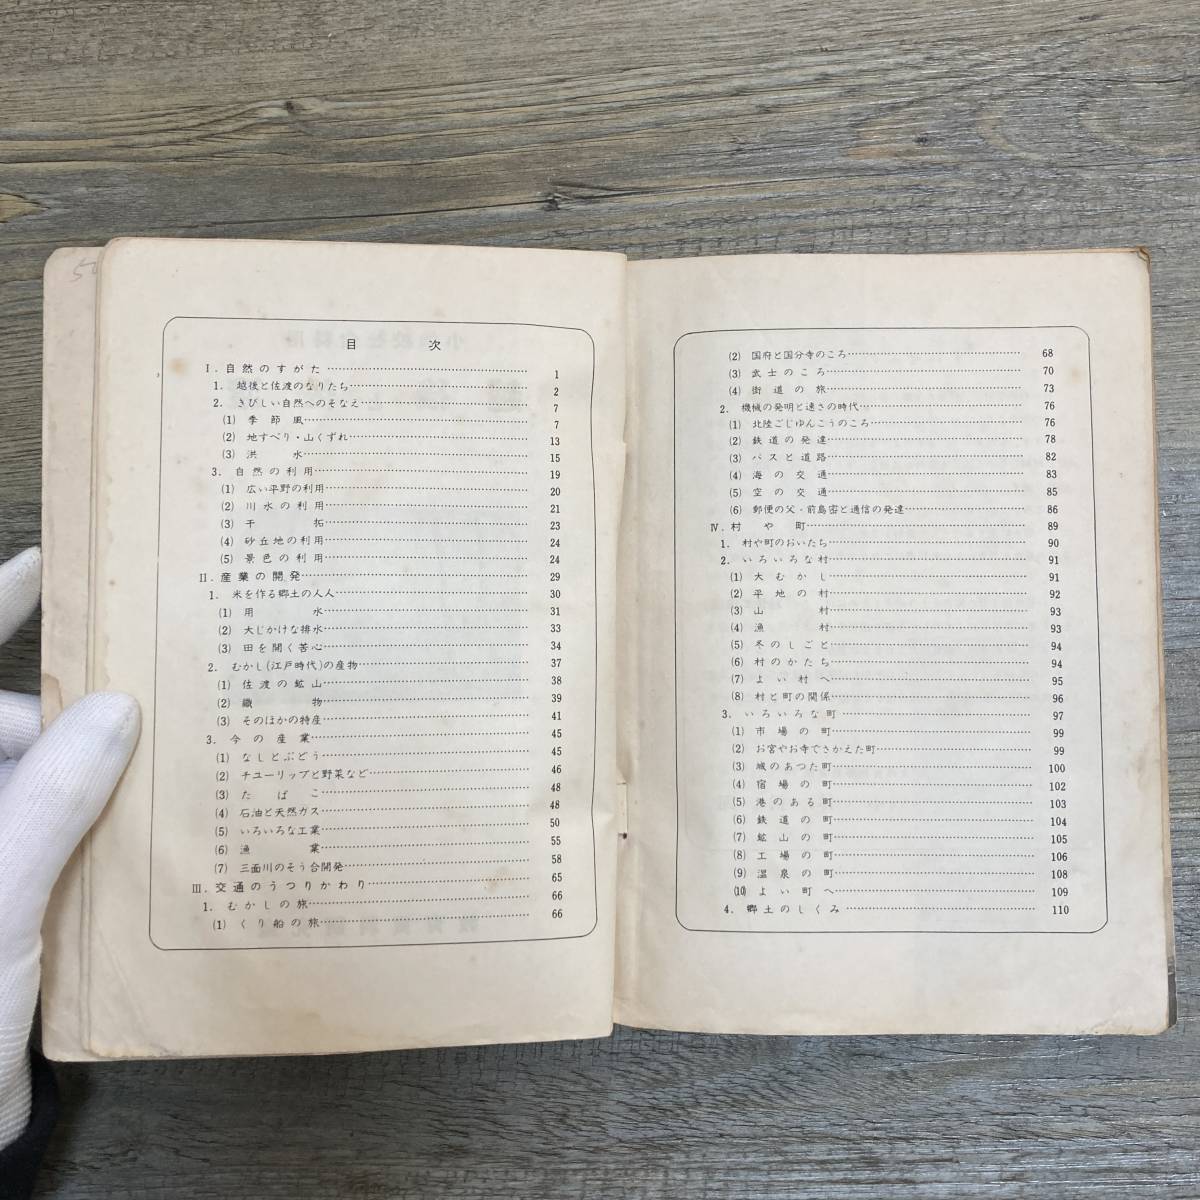 目次
Ⅰ. 自然のすがた 1
1. 越後と佐渡のなりたち 2
2. きびしい自然へのそなえ 7
(1) 季節風 7
(2) 地すべり・山くずれ 13
(3) 洪水 15
3. 自然の利用 19
(1) 広い平野の利用 20
(2) 川水の利用 21
(3) 干拓 23
(4) 砂丘地の利用 24
(5) 景色の利用 24
Ⅱ. 産業の開発 29
1. 米を作る郷土の人人 30
(1) 用水 31
(2) 大じかけな排水 33
(3) 田を開く苦心 34
2. むかし(江戸時代)の産物 37
(1) 佐渡の鉱山 38
(2) 織物 39
(3) そのほかの特産 41
3. 今の産業 45
(1) なしとぶどう 45
(2) チューリップと野菜など 46
(3) たばこ 48
(4) 石油と天然ガス 48
(5) いろいろな工業 50
(6) 漁業 55
(7) 三面川のそう合開発 58
Ⅲ. 交通のうつりかわり 65
1. むかしの旅 66
(1) くり船の旅 66
(2) 国府と国分寺のころ 68
(3) 武士のころ 70
(4) 街道の旅 73
2. 機械の発明と速さの時代 76
(1) 北陸ごじゆんこうのころ 76
(2) 鉄道の発達 78
(3) バスと道路 82
(4) 海の交通 83
(5) 空の交通 85
(6) 郵便の父・前島密と通信の発達 86
Ⅳ. 村や町 89
1. 村や町のおいたち 90
2. いろいろな村 91
(1) 大むかし 91
(2) 平地の村 92
(3) 山村 93
(4) 漁村 93
(5) 冬のしごと 94
(6) 村のかたち 94
(7) よい村へ 95
(8) 村と町の関係 96
3. いろいろな町 97
(1) 市場の町 99
(2) お宮やお寺でさかえた町 99
(3) 城のあつた町 100
(4) 宿場の町 102
(5) 港のある町 103
(6) 鉄道の町 104
(7) 鉱山の町 105
(8) 工場の町 106
(9) 温泉の町 108
(10) よい町へ 109
4. 郷土のしくみ 110